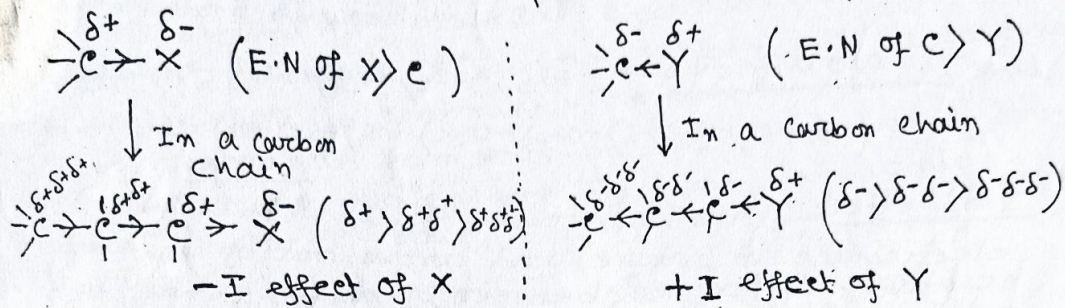 δ+ δ-
-C→X (E.N of X>C)
In a carbon
chain
δ+δ+δ+ δ+δ+ δ+ δ-
C→C→C→X (δ+>δ+δ+>δ+δ+δ+)
-I effect of X
δ- δ+
-C←Y (E.N of C>Y)
In a carbon chain
δ-δ-δ- δ-δ- δ- δ+
C←C←C←Y (δ->δ-δ->δ-δ-δ-)
+I effect of Y